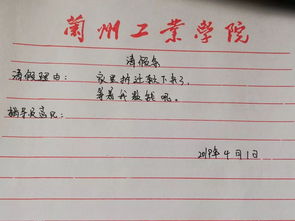 蘭州工业学院
请假条
请假理由：家里拆迁款下来了，
等着我数钱呢。
辅导员意见：
2019年4月1日